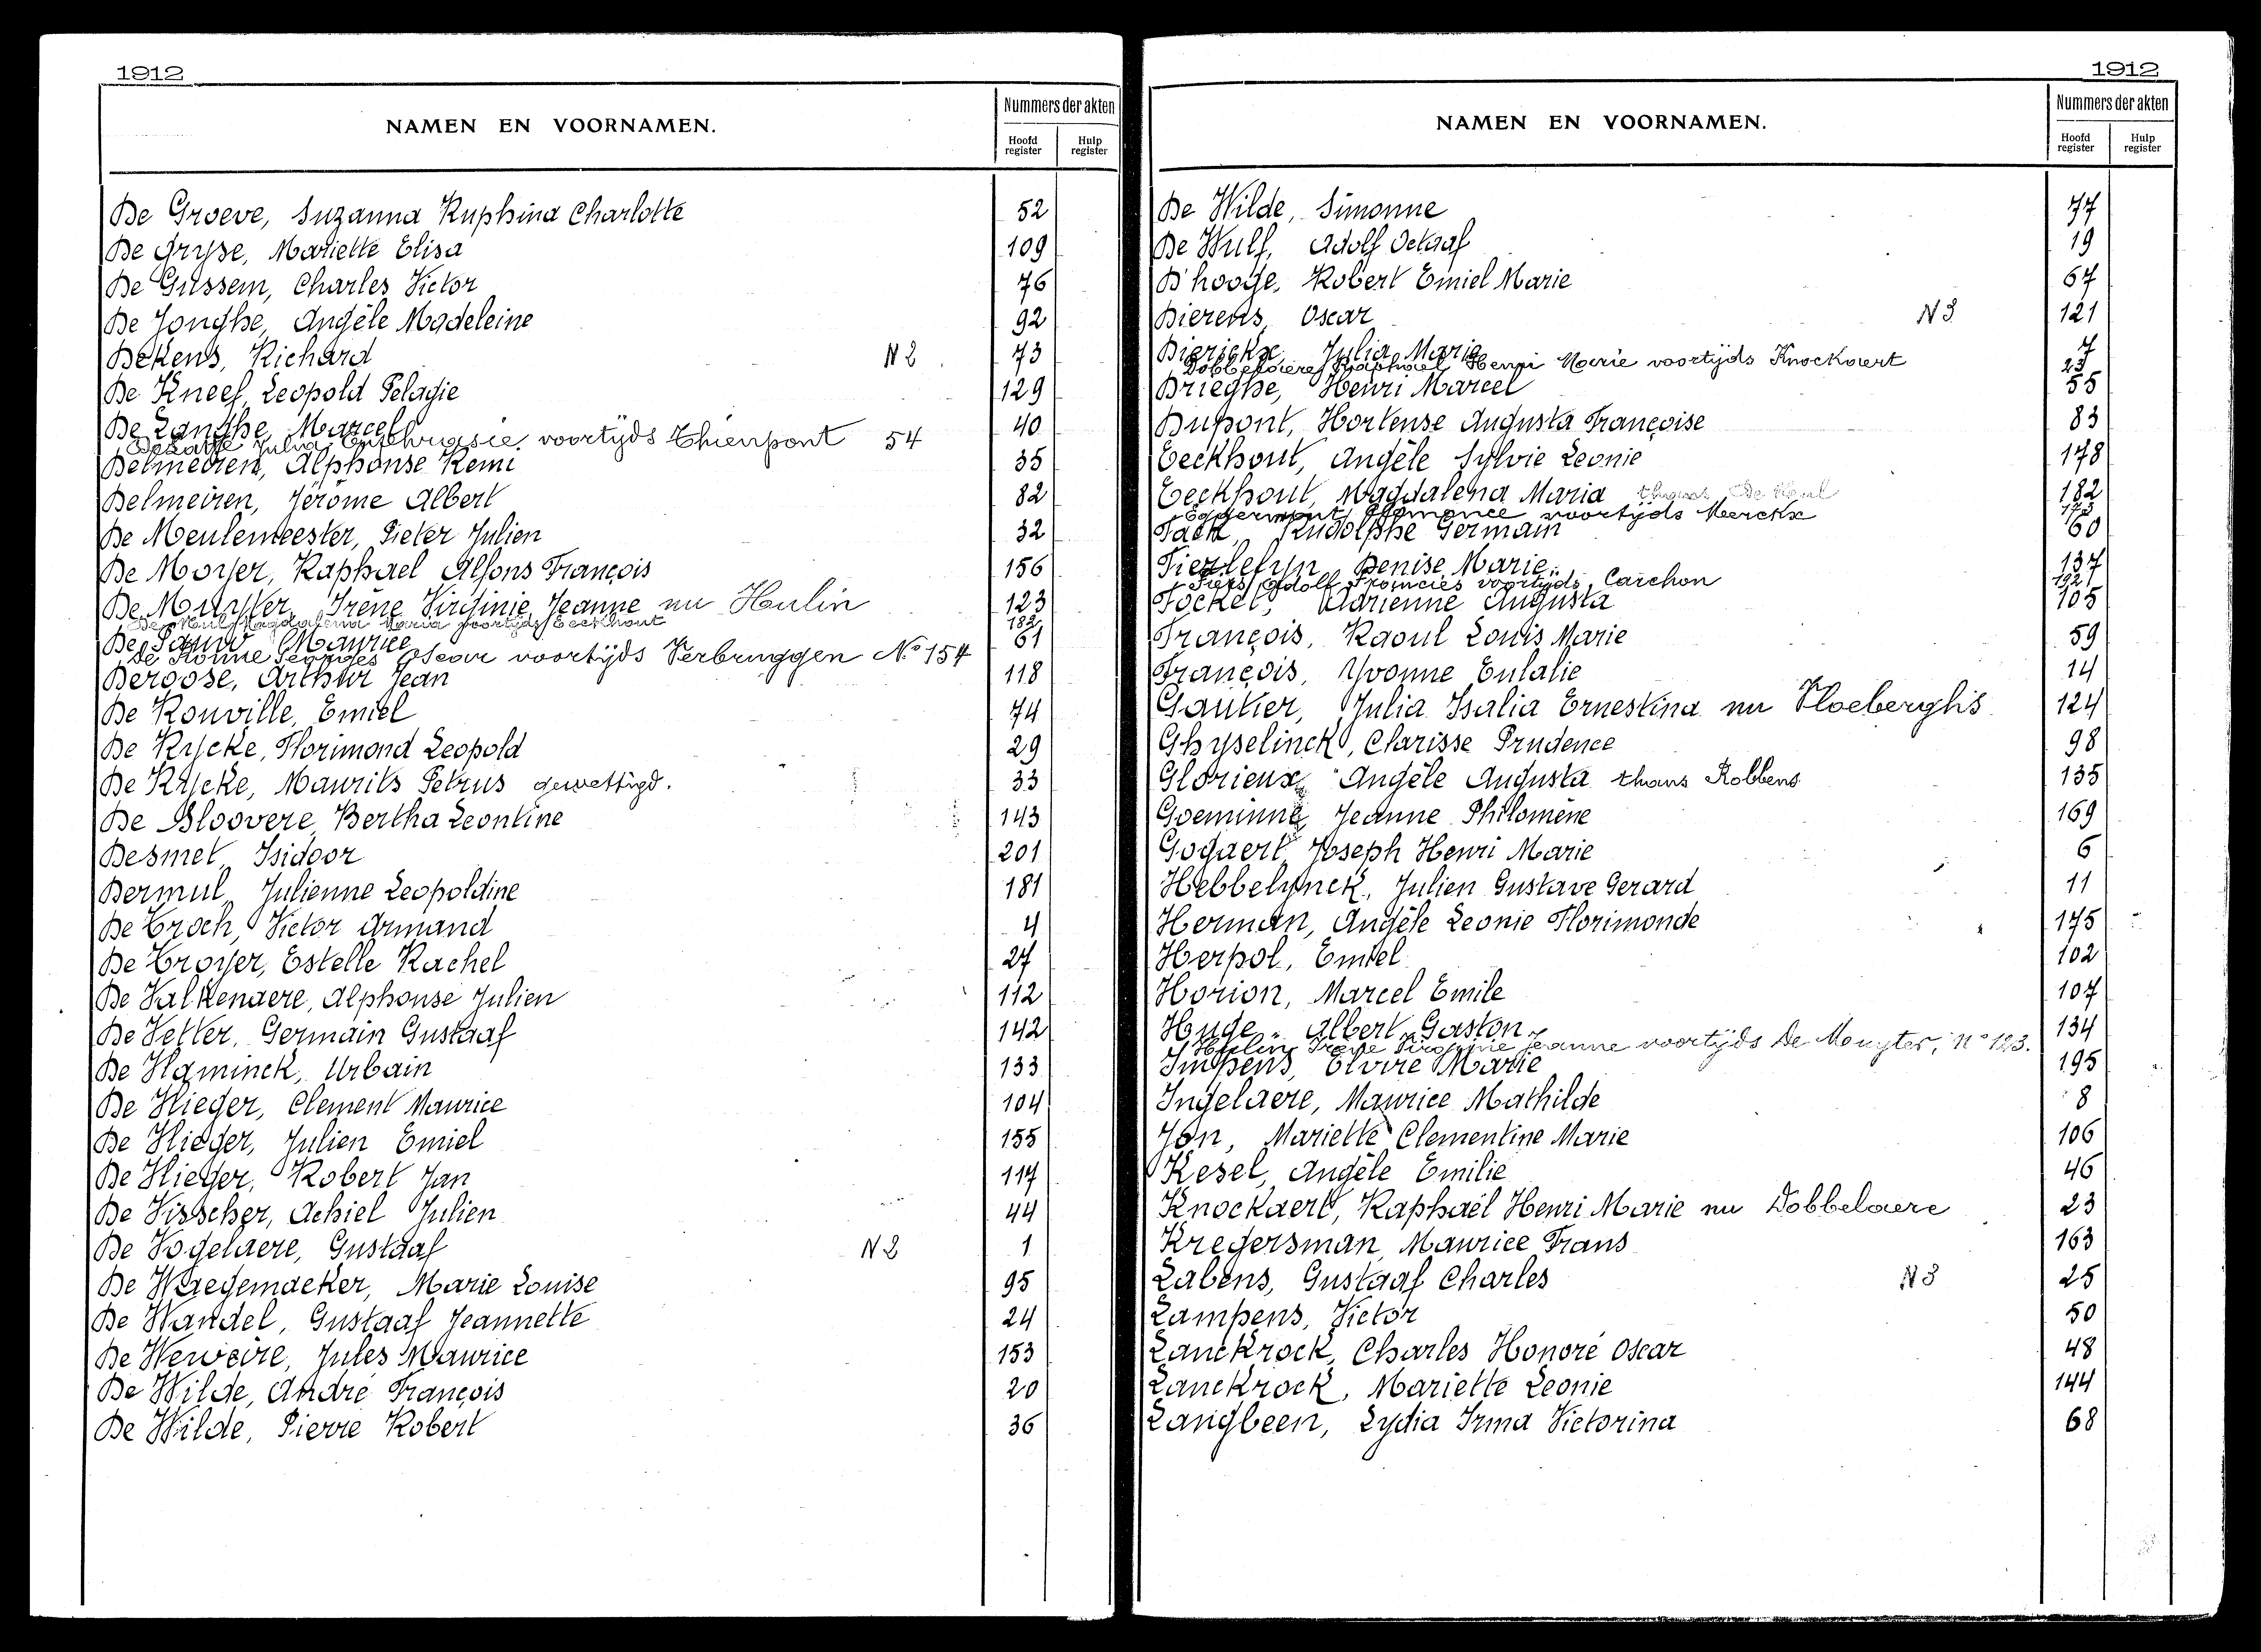 1912
NAMEN EN VOORNAMEN.
Nummers der akten
Hoofd register
Hulp register
De Groeve, Suzanna Ruphina Charlotte 52
De Gryse, Mariette Elisa 109
De Gussem, Charles Victor 76
De Jonghe, Angèle Madeleine 92
Dekens, Richard N2 73
De Kneef, Leopold Pelagie 129
De Langhe, Marcel 40
Julia Euphrasie voortijds Thienpont 54
Delmeiren, Alphonse Remi 35
Delmeiren, Jérôme Albert 82
De Meulemeester, Pieter Julien 32
De Moyer, Raphael Alfons François 156
De Muyster, Irène Virginie Jeanne nu Hulin 123
De Meul Magdalena Maria voortijds Eeckhout 182
De Pauw Maurice 61
De Ronne Georges Oscar voortijds Verbruggen No 154
Deroose, Arthur Jean 118
De Rouville, Emiel 74
De Rycke, Florimond Leopold 29
De Rycke, Maurits Petrus gewettigd. 33
De Sloovere, Bertha Leontine 143
Desmet, Isidoor 201
Dermul, Julienne Leopoldine 181
De Troch, Victor Armand 4
De Troyer, Estelle Rachel 27
De Valkenaere, Alphonse Julien 112
De Vetter, Germain Gustaaf 142
De Vlaminck, Urbain 133
De Vlieger, Clement Maurice 104
De Vlieger, Julien Emiel 155
De Vlieger, Robert Jan 117
De Visscher, Achiel Julien 44
De Vogelaere, Gustaaf N2 1
De Waegemaeker, Marie Louise 95
De Wandel, Gustaaf Jeannette 24
De Weweire, Jules Maurice 153
De Wilde, André François 20
De Wilde, Pierre Robert 36
1912
NAMEN EN VOORNAMEN.
Nummers der akten
Hoofd register
Hulp register
De Wilde, Simonne 77
De Wulf, Adolf Octaaf 19
D'hooge, Robert Emiel Marie 67
Dierens, Oscar N3 121
Dierickx, Julia Maria 7
Dobbelaere, Raphael Henri Marie voortijds Knockaert 23
Drieghe, Henri Marcel 55
Dupont, Hortense Augusta Françoise 83
Eeckhout, Angèle Sylvie Leonie 178
Eeckhout, Magdalena Maria thans De Meul 182
Eggermont, voortijds Merckx
Fack, Rudolphe Germain 60
Fierlefyn, Denise Marie 137
Fiers, Adolf Francies voortijds Carchon 192
Fockel, Adrienne Augusta 105
François, Raoul Louis Marie 59
François, Yvonne Eulalie 14
Gautier, Julia Isalia Ernestina nu Vloeberghs 124
Ghyselinck, Clarisse Prudence 98
Glorieux, Angèle Augusta thans Robbens 135
Goeminne, Jeanne Philomène 169
Gogaert, Joseph Henri Marie 6
Hebbelynck, Julien Gustave Gerard 11
Herman, Angèle Leonie Florimonde 175
Herpol, Emiel 102
Horion, Marcel Emile 107
Huge, Albert Gaston 134
Hulin Irène Virginie Jeanne voortijds De Muyter, no 123.
Impens, Elvire Marie 195
Ingelaere, Maurice Mathilde 8
Jon, Mariette Clementine Marie 106
Kesel, Angèle Emilie 46
Knockaert, Raphaël Henri Marie nu Dobbelaere 23
Kregersman, Maurice Frans 163
Labens, Gustaaf Charles N3 25
Lampens, Victor 50
Lanckrock, Charles Honoré Oscar 48
Lanckrock, Mariette Leonie 144
Langbeen, Lydia Irma Victorina 68